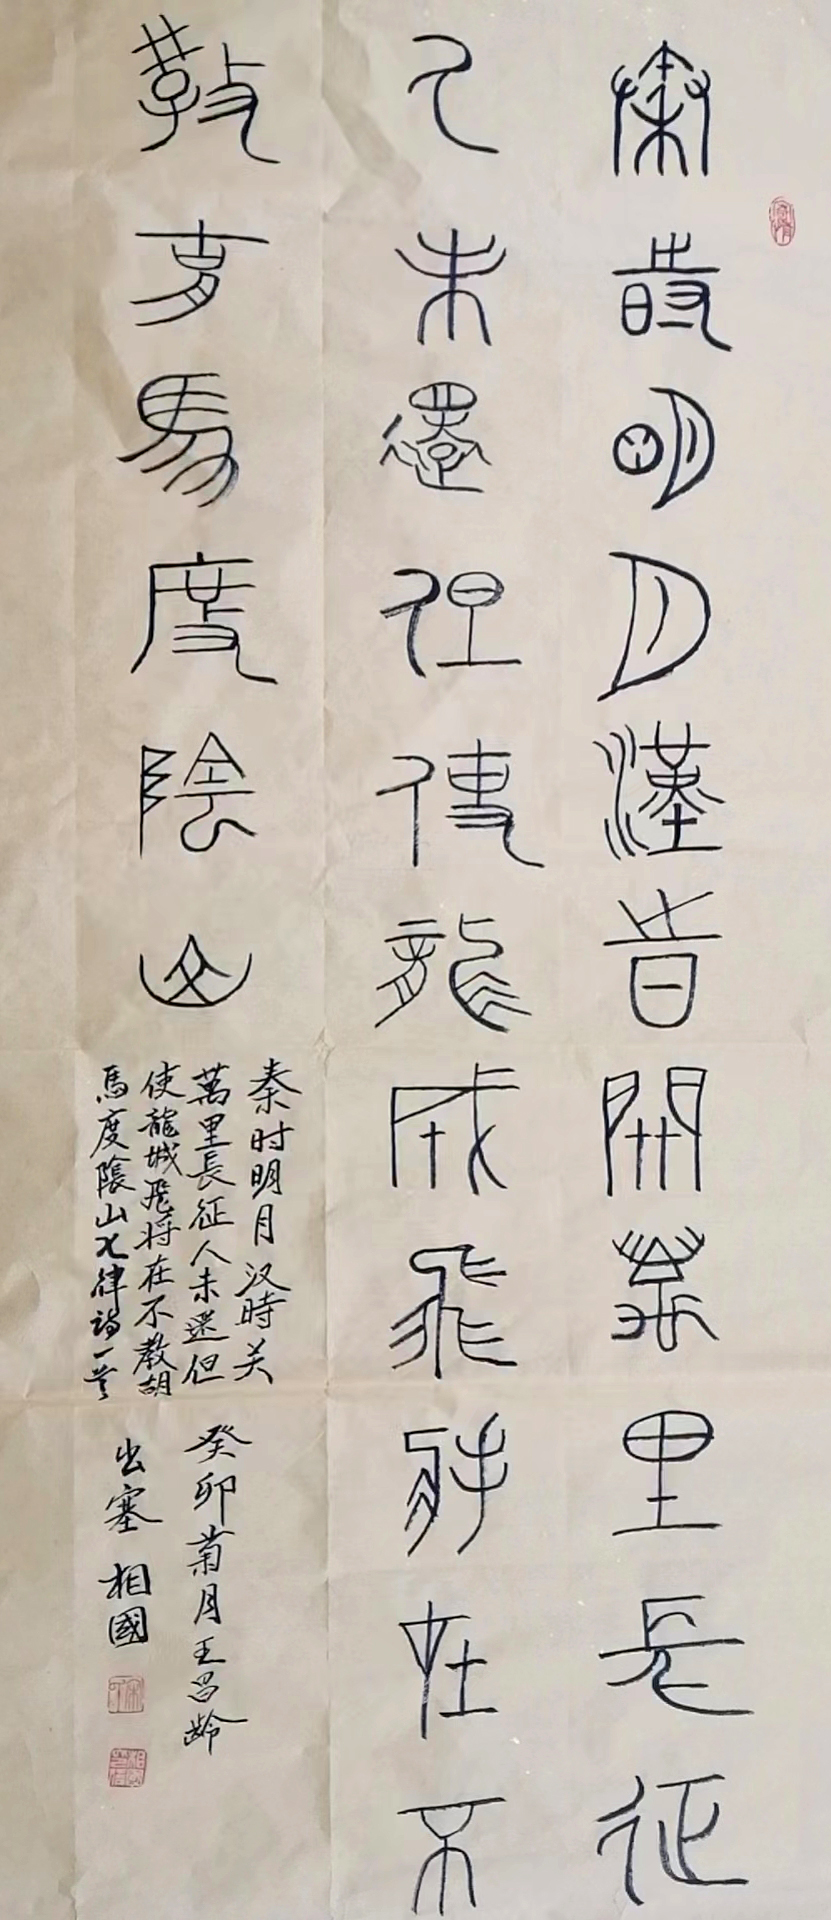 秦旹明月漢旹開萬里長征
人未還但使龍城飛將在不
教胡馬度陰山
秦时明月汉時关
萬里長征人未還但
使龍城飛将在不教胡
馬度隂山七律詩一首
癸卯菊月王昌齡
出塞 相國